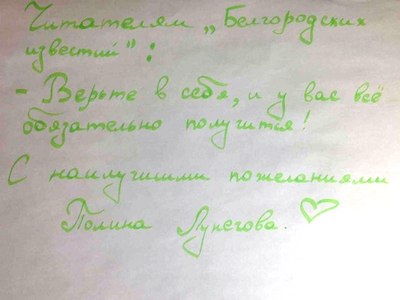 Читателям „Белгородских
известий":
- Верьте в себя, и у вас всё
обязательно получится!
С наилучшими пожеланиями
Полина Лунегова.